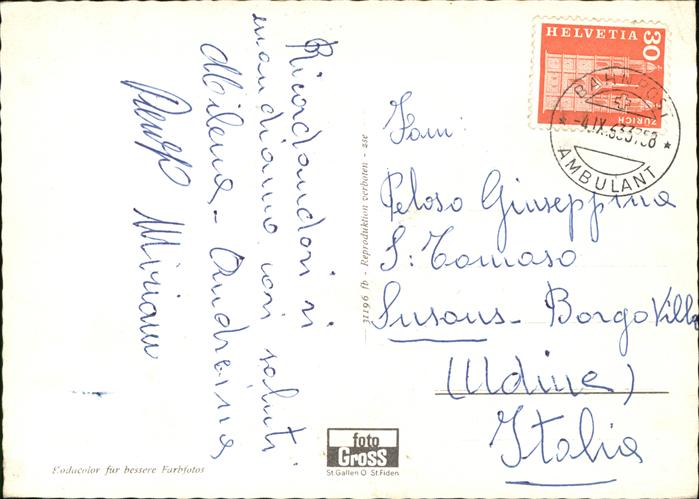 Ricordandovi vi
mandiamo cari saluti
Milena - Andreina
Miriam
Kodacolor für bessere Farbfotos
31196 fb - Reproduktion verboten - zse
foto
GROSS
St. Gallen O St. Fiden
HELVETIA
30
ZÜRICH
BAHNPOST
-4.IX.63
AMBULANT
Fam:
Peloso Giuseppina
S: Tomaso
Susans - Borgo Villa
(Udine)
Italia